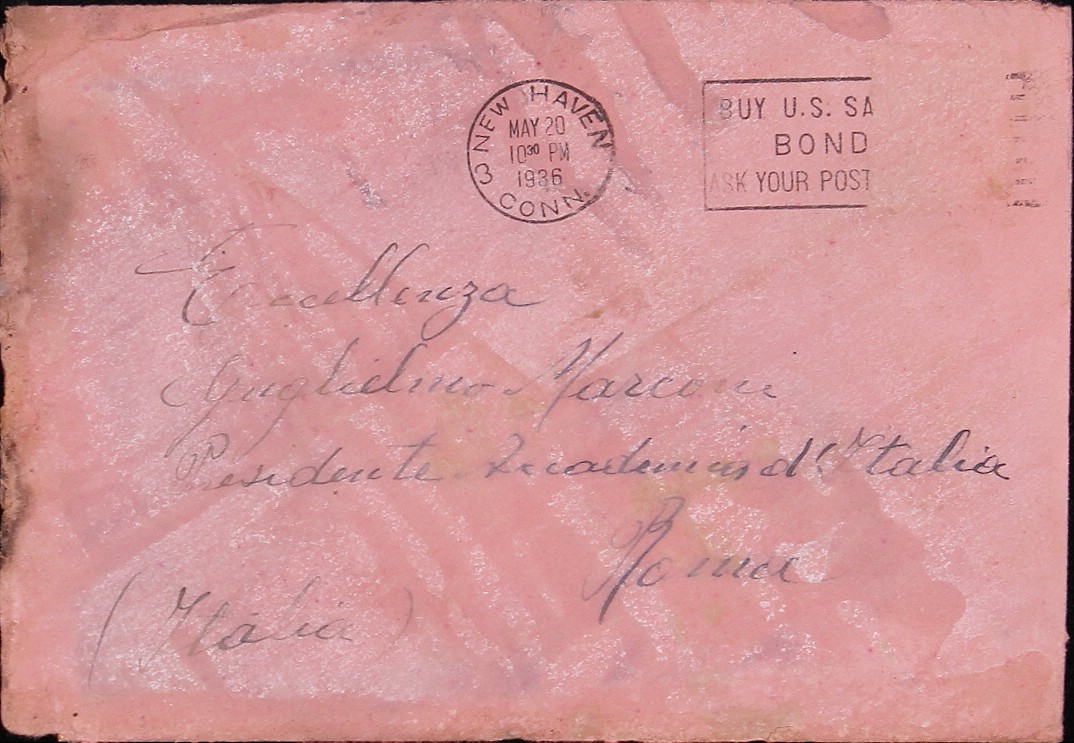 NEW HAVEN
MAY 20
10³⁰ PM
1936
3 CONN.
BUY U.S. SA
BOND
ASK YOUR POST
Eccellenza
Guglielmo Marconi
Presidente Accademia d'Italia
Roma
(Italia)